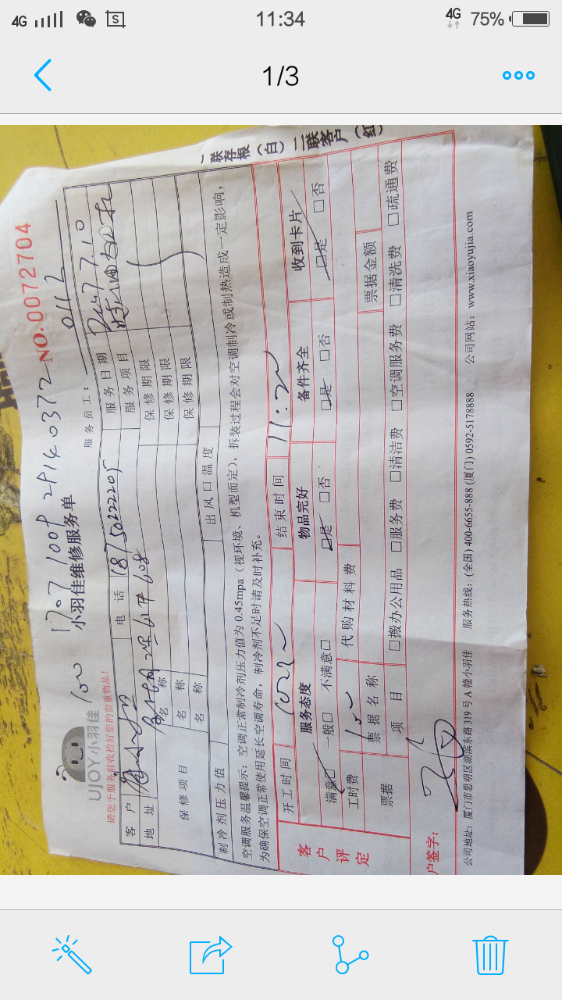 4G
11:34
4G 75%
1/3
一联存根（白）二联客户（红）
100 1707 1009 2914 0372
UJOY小羽佳
小羽佳维修服务单
NO.0072704
请您于服务前收拾好您的贵重物品！
服务员工： 0112
客户
电话 18750222205
服务日期 2017.7.10
地址
608
服务项目
保修项目
名称
保修期限
名称
保修期限
名称
保修期限
制冷剂压力值
出风口温度
空调服务温馨提示：空调正常制冷剂压力值为 0.45mpa（视环境、机型而定），拆装过程会对空调制冷或制热造成一定影响，
为确保空调正常使用延长空调寿命，制冷剂不足时请及时补充。
客户评定
开工时间
结束时间 11:20
服务态度
物品完好
备件齐全
收到卡片
满意□ 一般□ 不满意□
□是 □否
□是 □否
□是 □否
工时费
代购材料费
票据
票据名称
票据金额
项目
□搬办公用品 □服务费 □清洁费 □空调服务费 □清洗费 □疏通费
户签字：
公司地址：厦门市思明区湖滨东路 319 号 A 幢小羽佳 服务热线：(全国) 400-6655-888 (厦门) 0592-5178888 公司网站：www.xiaoyujia.com